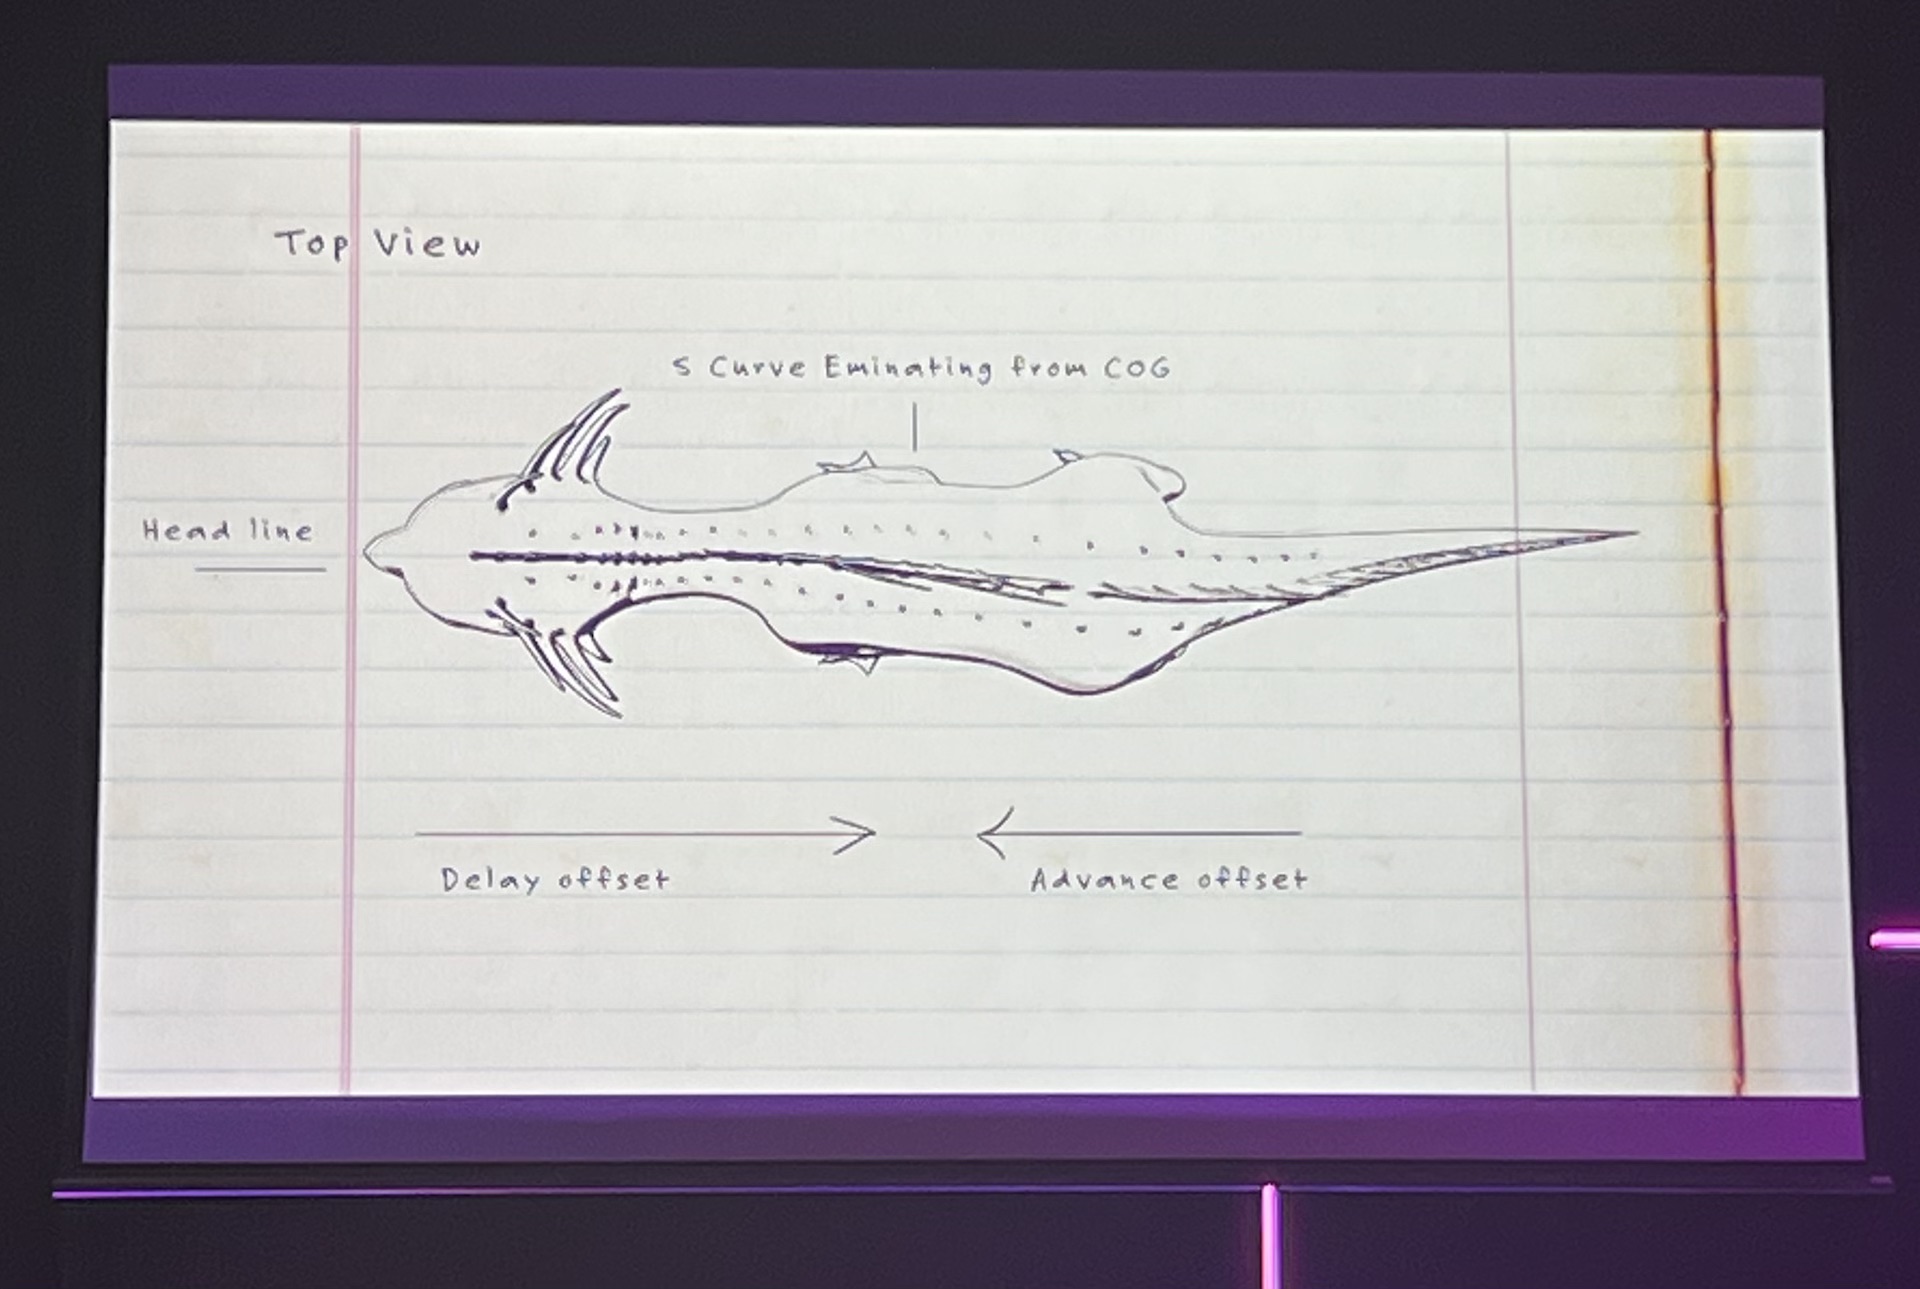 Top View
S Curve Eminating from COG
Head line
Delay offset
Advance offset